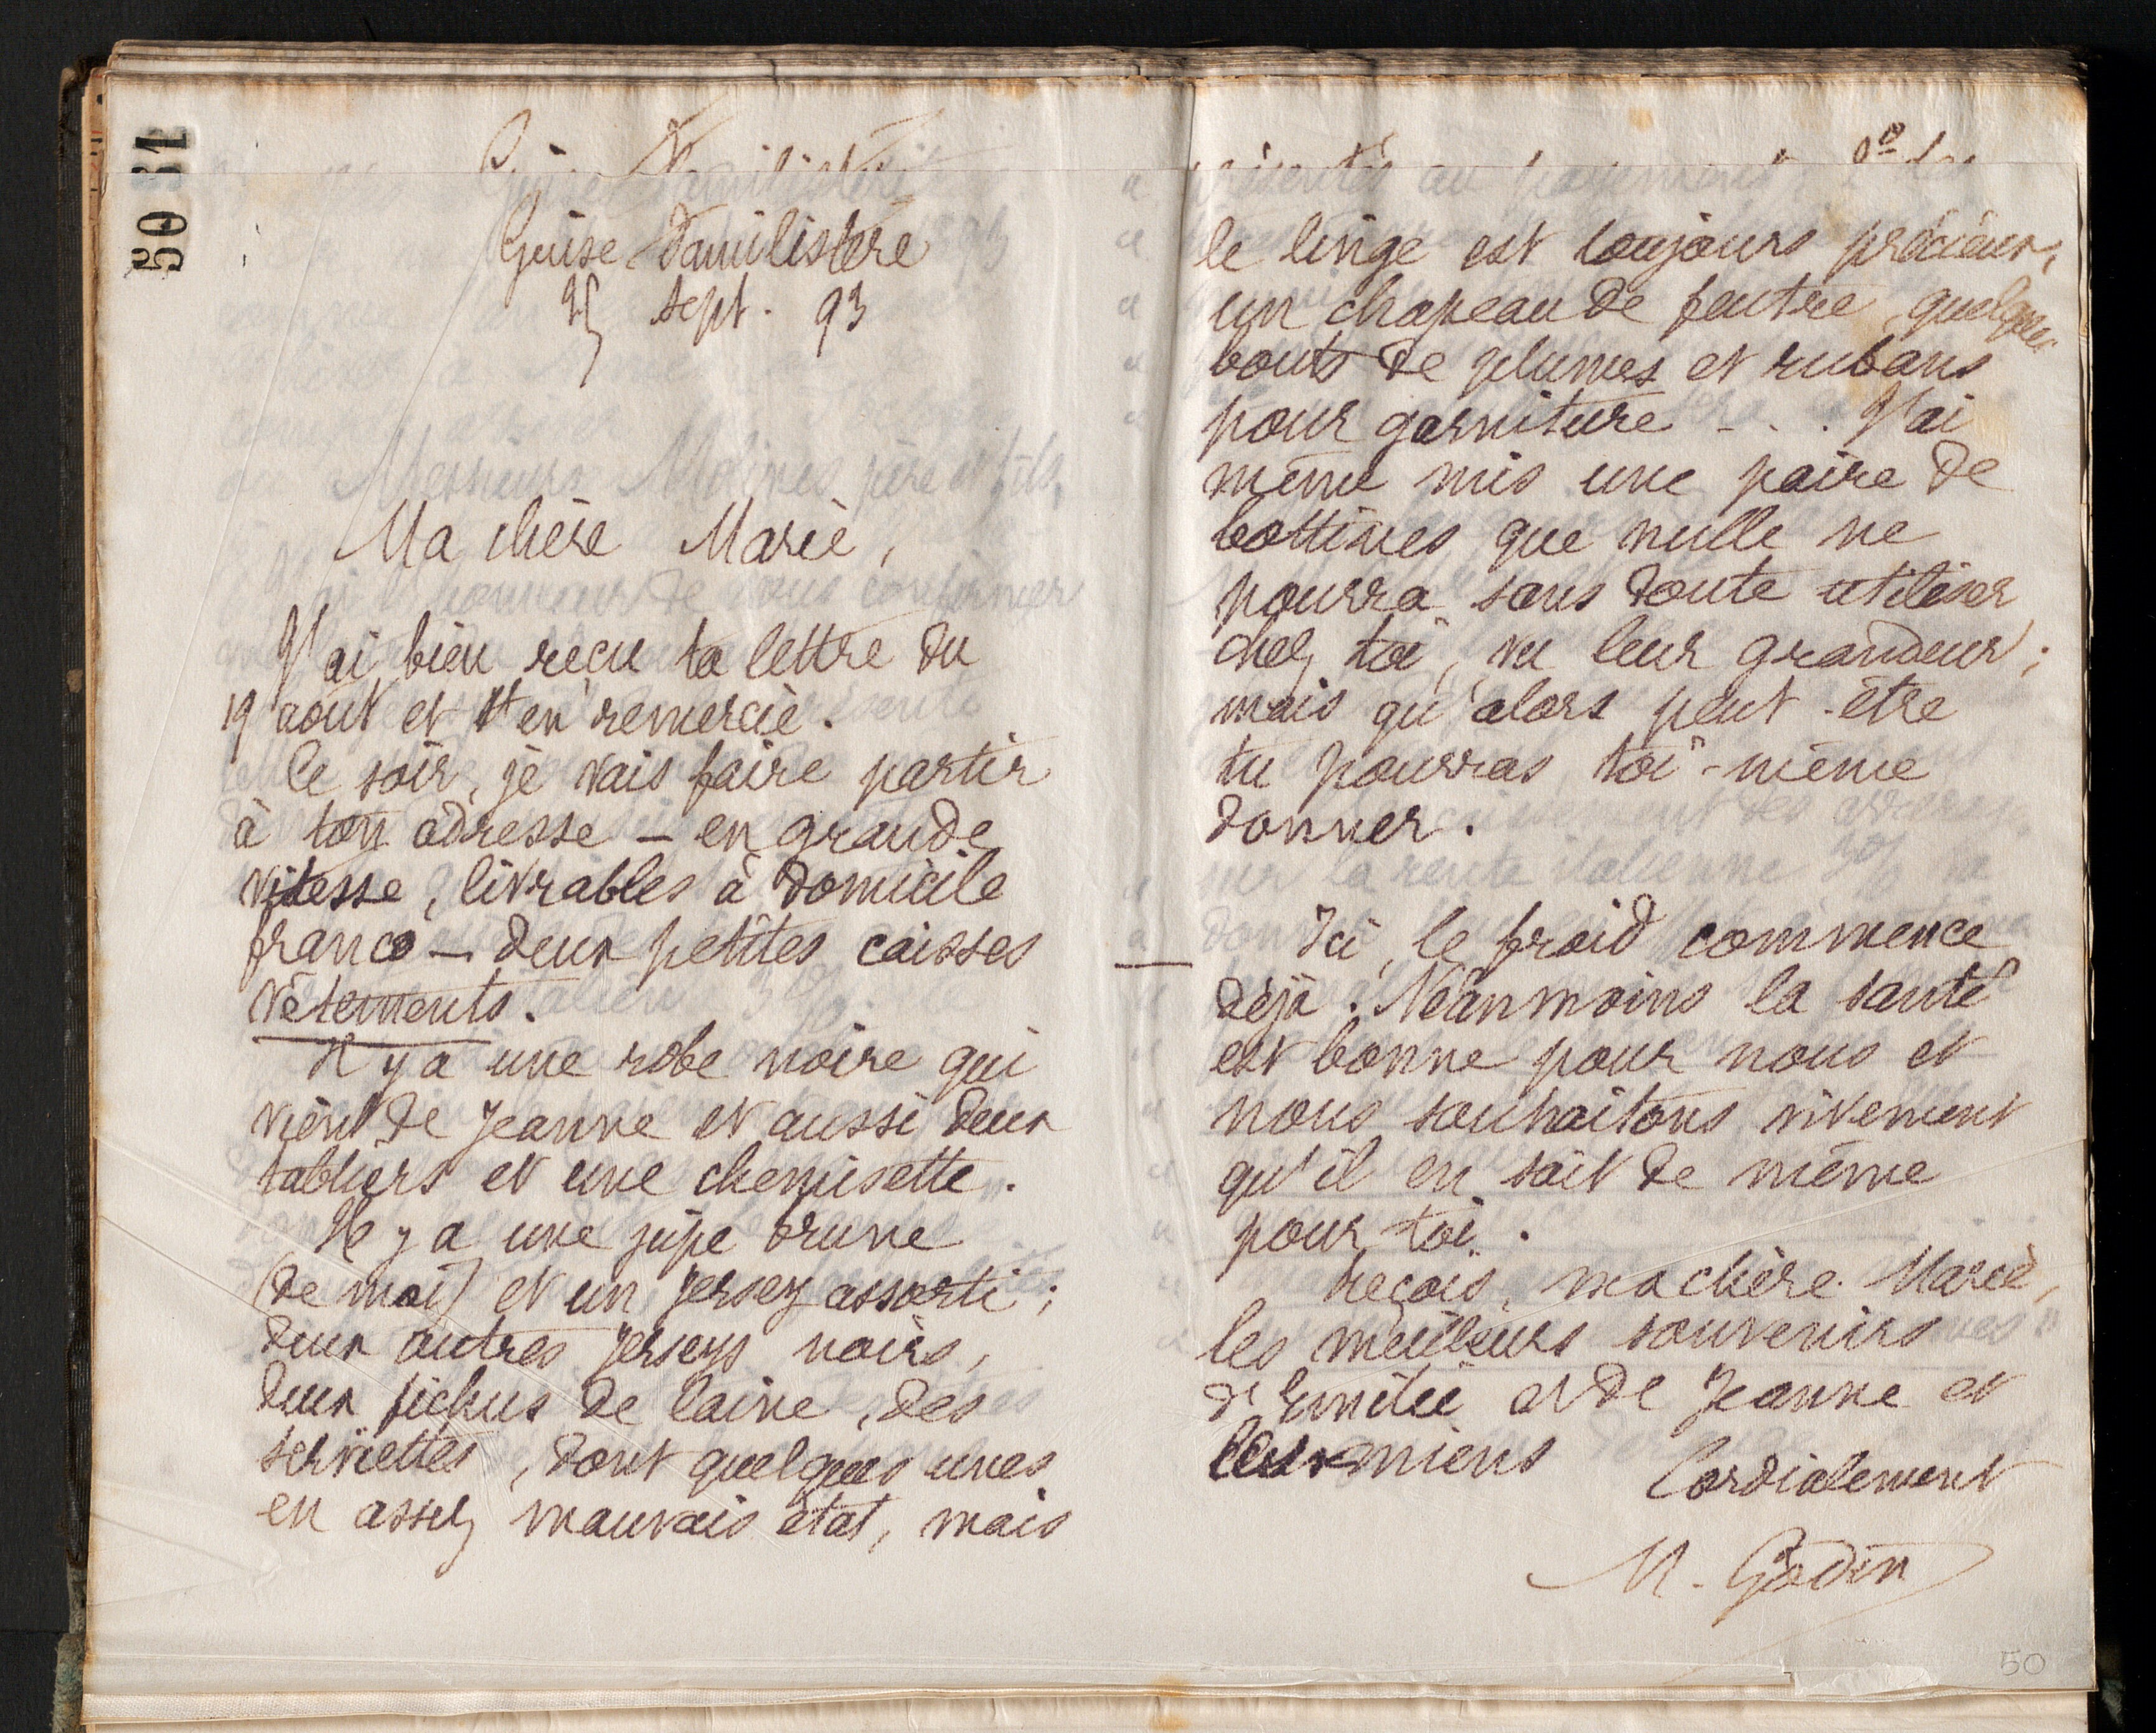 50
Guise Familistère
25 sept. 93
Ma chère Marie,
J'ai bien reçu ta lettre du
19 août et t'en remercie.
Ce soir, je vais faire partir
à ton adresse – en grande
vitesse, livrables à domicile
franco – deux petites caisses
vêtements.
Il y a une robe noire qui
vient de Jeanne et aussi deux
tabliers et une chemisette.
Il y a une jupe brune
(de moi) et un jersey assorti ;
deux autres jerseys noirs,
deux fichus de laine, des
serviettes, dont quelques unes
en assez mauvais état, mais
le linge est toujours précieux,
un chapeau de feutre, quelques
bouts de plumes et rubans
pour garniture - . . J'ai
même mis une paire de
bottines que nulle ne
pourra sans doute utiliser
chez toi, vu leur grandeur ;
mais qu'alors peut-être
tu pourras toi-même
donner.
Ici, le froid commence
déjà. Néanmoins la santé
est bonne pour nous et
nous souhaitons vivement
qu'il en soit de même
pour toi.
Reçois, ma chère Marie,
les meilleurs souvenirs
d'Emilie et de Jeanne et
les miens Cordialement
M. Godin
50